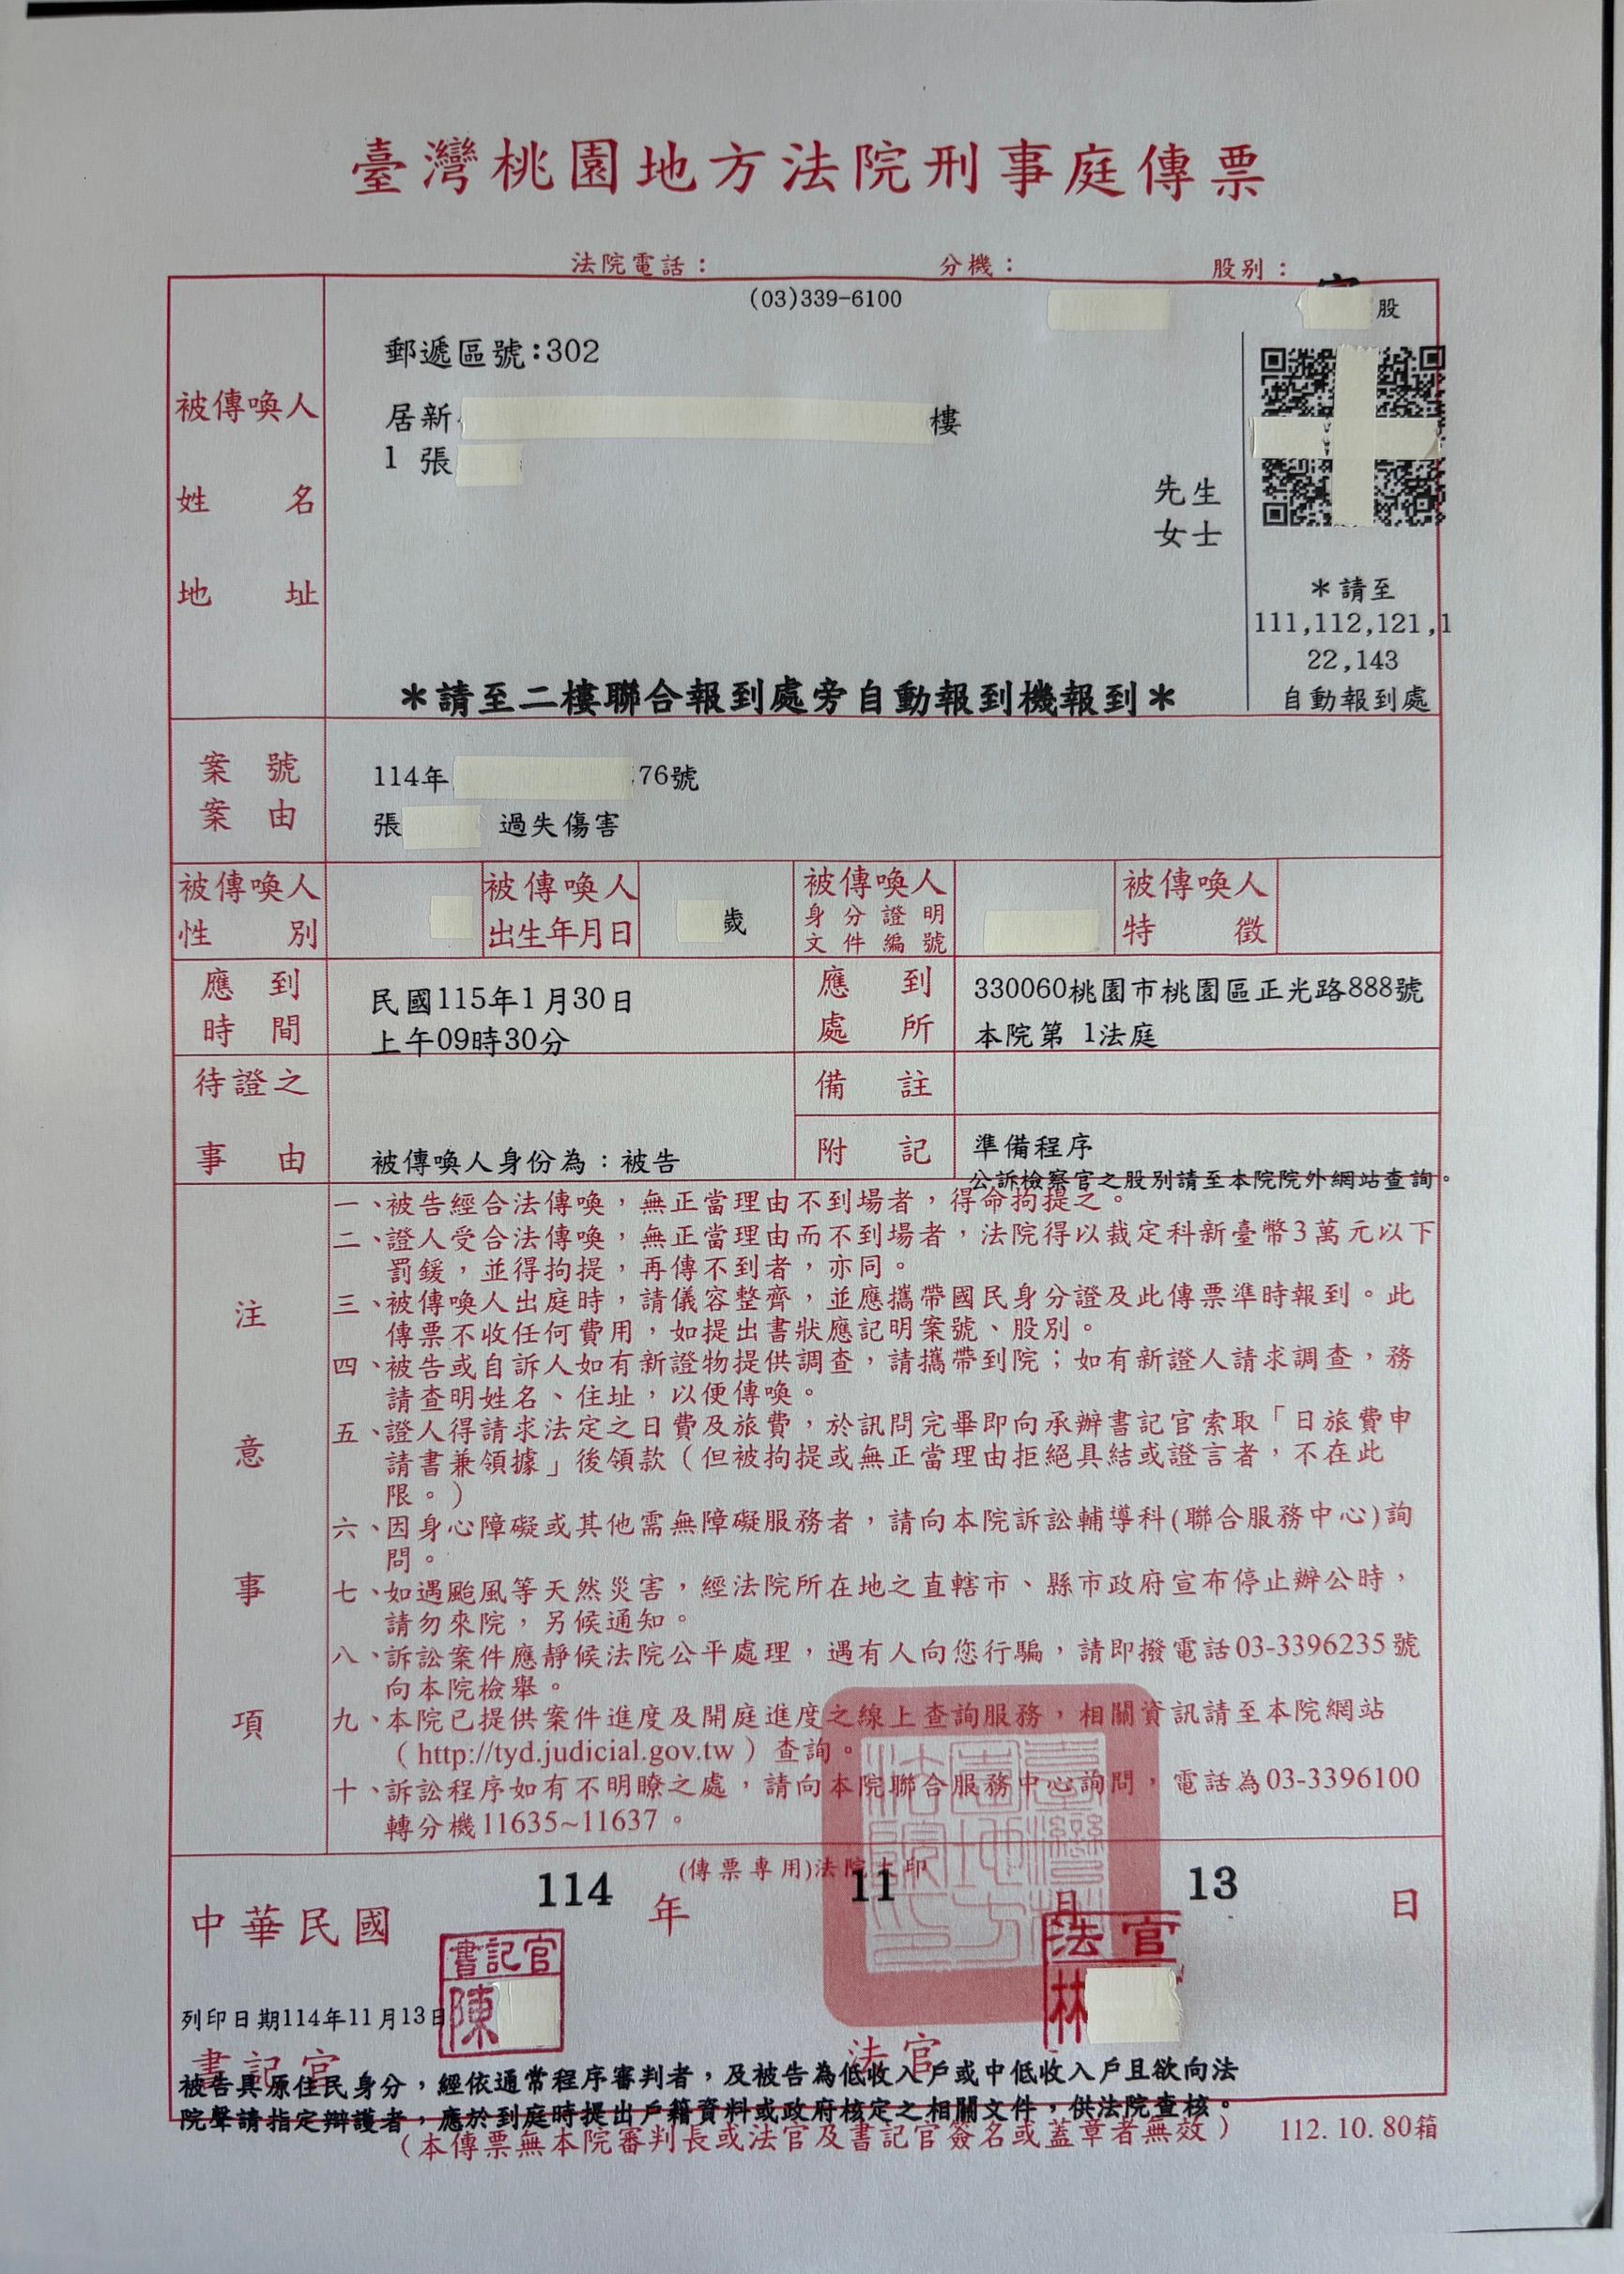 臺灣桃園地方法院刑事庭傳票
法院電話：
分機：
股別：
(03)339-6100
股
被傳喚人
姓名
地址
郵遞區號:302
居新
樓
1 張
先生
女士
＊請至
111,112,121,1
22,143
自動報到處
＊請至二樓聯合報到處旁自動報到機報到＊
案號
114年
76號
案由
張
過失傷害
被傳喚人
性別
被傳喚人
出生年月日
歲
被傳喚人
身分證明
文件編號
被傳喚人
特徵
應到
時間
民國115年1月30日
上午09時30分
應到
處所
330060桃園市桃園區正光路888號
本院第 1法庭
待證之
事由
被傳喚人身份為：被告
備註
附記
準備程序
公訴檢察官之股別請至本院院外網站查詢。
注意事項
一、被告經合法傳喚，無正當理由不到場者，得命拘提之。
二、證人受合法傳喚，無正當理由而不到場者，法院得以裁定科新臺幣3萬元以下
罰鍰，並得拘提，再傳不到者，亦同。
三、被傳喚人出庭時，請儀容整齊，並應攜帶國民身分證及此傳票準時報到。此
傳票不收任何費用，如提出書狀應記明案號、股別。
四、被告或自訴人如有新證物提供調查，請攜帶到院；如有新證人請求調查，務
請查明姓名、住址，以便傳喚。
五、證人得請求法定之日費及旅費，於訊問完畢即向承辦書記官索取「日旅費申
請書兼領據」後領款（但被拘提或無正當理由拒絕具結或證言者，不在此
限。）
六、因身心障礙或其他需無障礙服務者，請向本院訴訟輔導科(聯合服務中心)詢
問。
七、如遇颱風等天然災害，經法院所在地之直轄市、縣市政府宣布停止辦公時，
請勿來院，另候通知。
八、訴訟案件應靜候法院公平處理，遇有人向您行騙，請即撥電話03-3396235號
向本院檢舉。
九、本院已提供案件進度及開庭進度之線上查詢服務，相關資訊請至本院網站
（http://tyd.judicial.gov.tw）查詢。
十、訴訟程序如有不明瞭之處，請向本院聯合服務中心詢問，電話為03-3396100
轉分機11635~11637。
(傳票專用)法院大印
臺灣桃園地方法院印
中華民國 114 年 11 月 13 日
書記官
陳
法官
林
列印日期114年11月13日
書記官
法官
被告具原住民身分，經依通常程序審判者，及被告為低收入戶或中低收入戶且欲向法
院聲請指定辯護者，應於到庭時提出戶籍資料或政府核定之相關文件，供法院查核。
（本傳票無本院審判長或法官及書記官簽名或蓋章者無效）
112.10.80箱